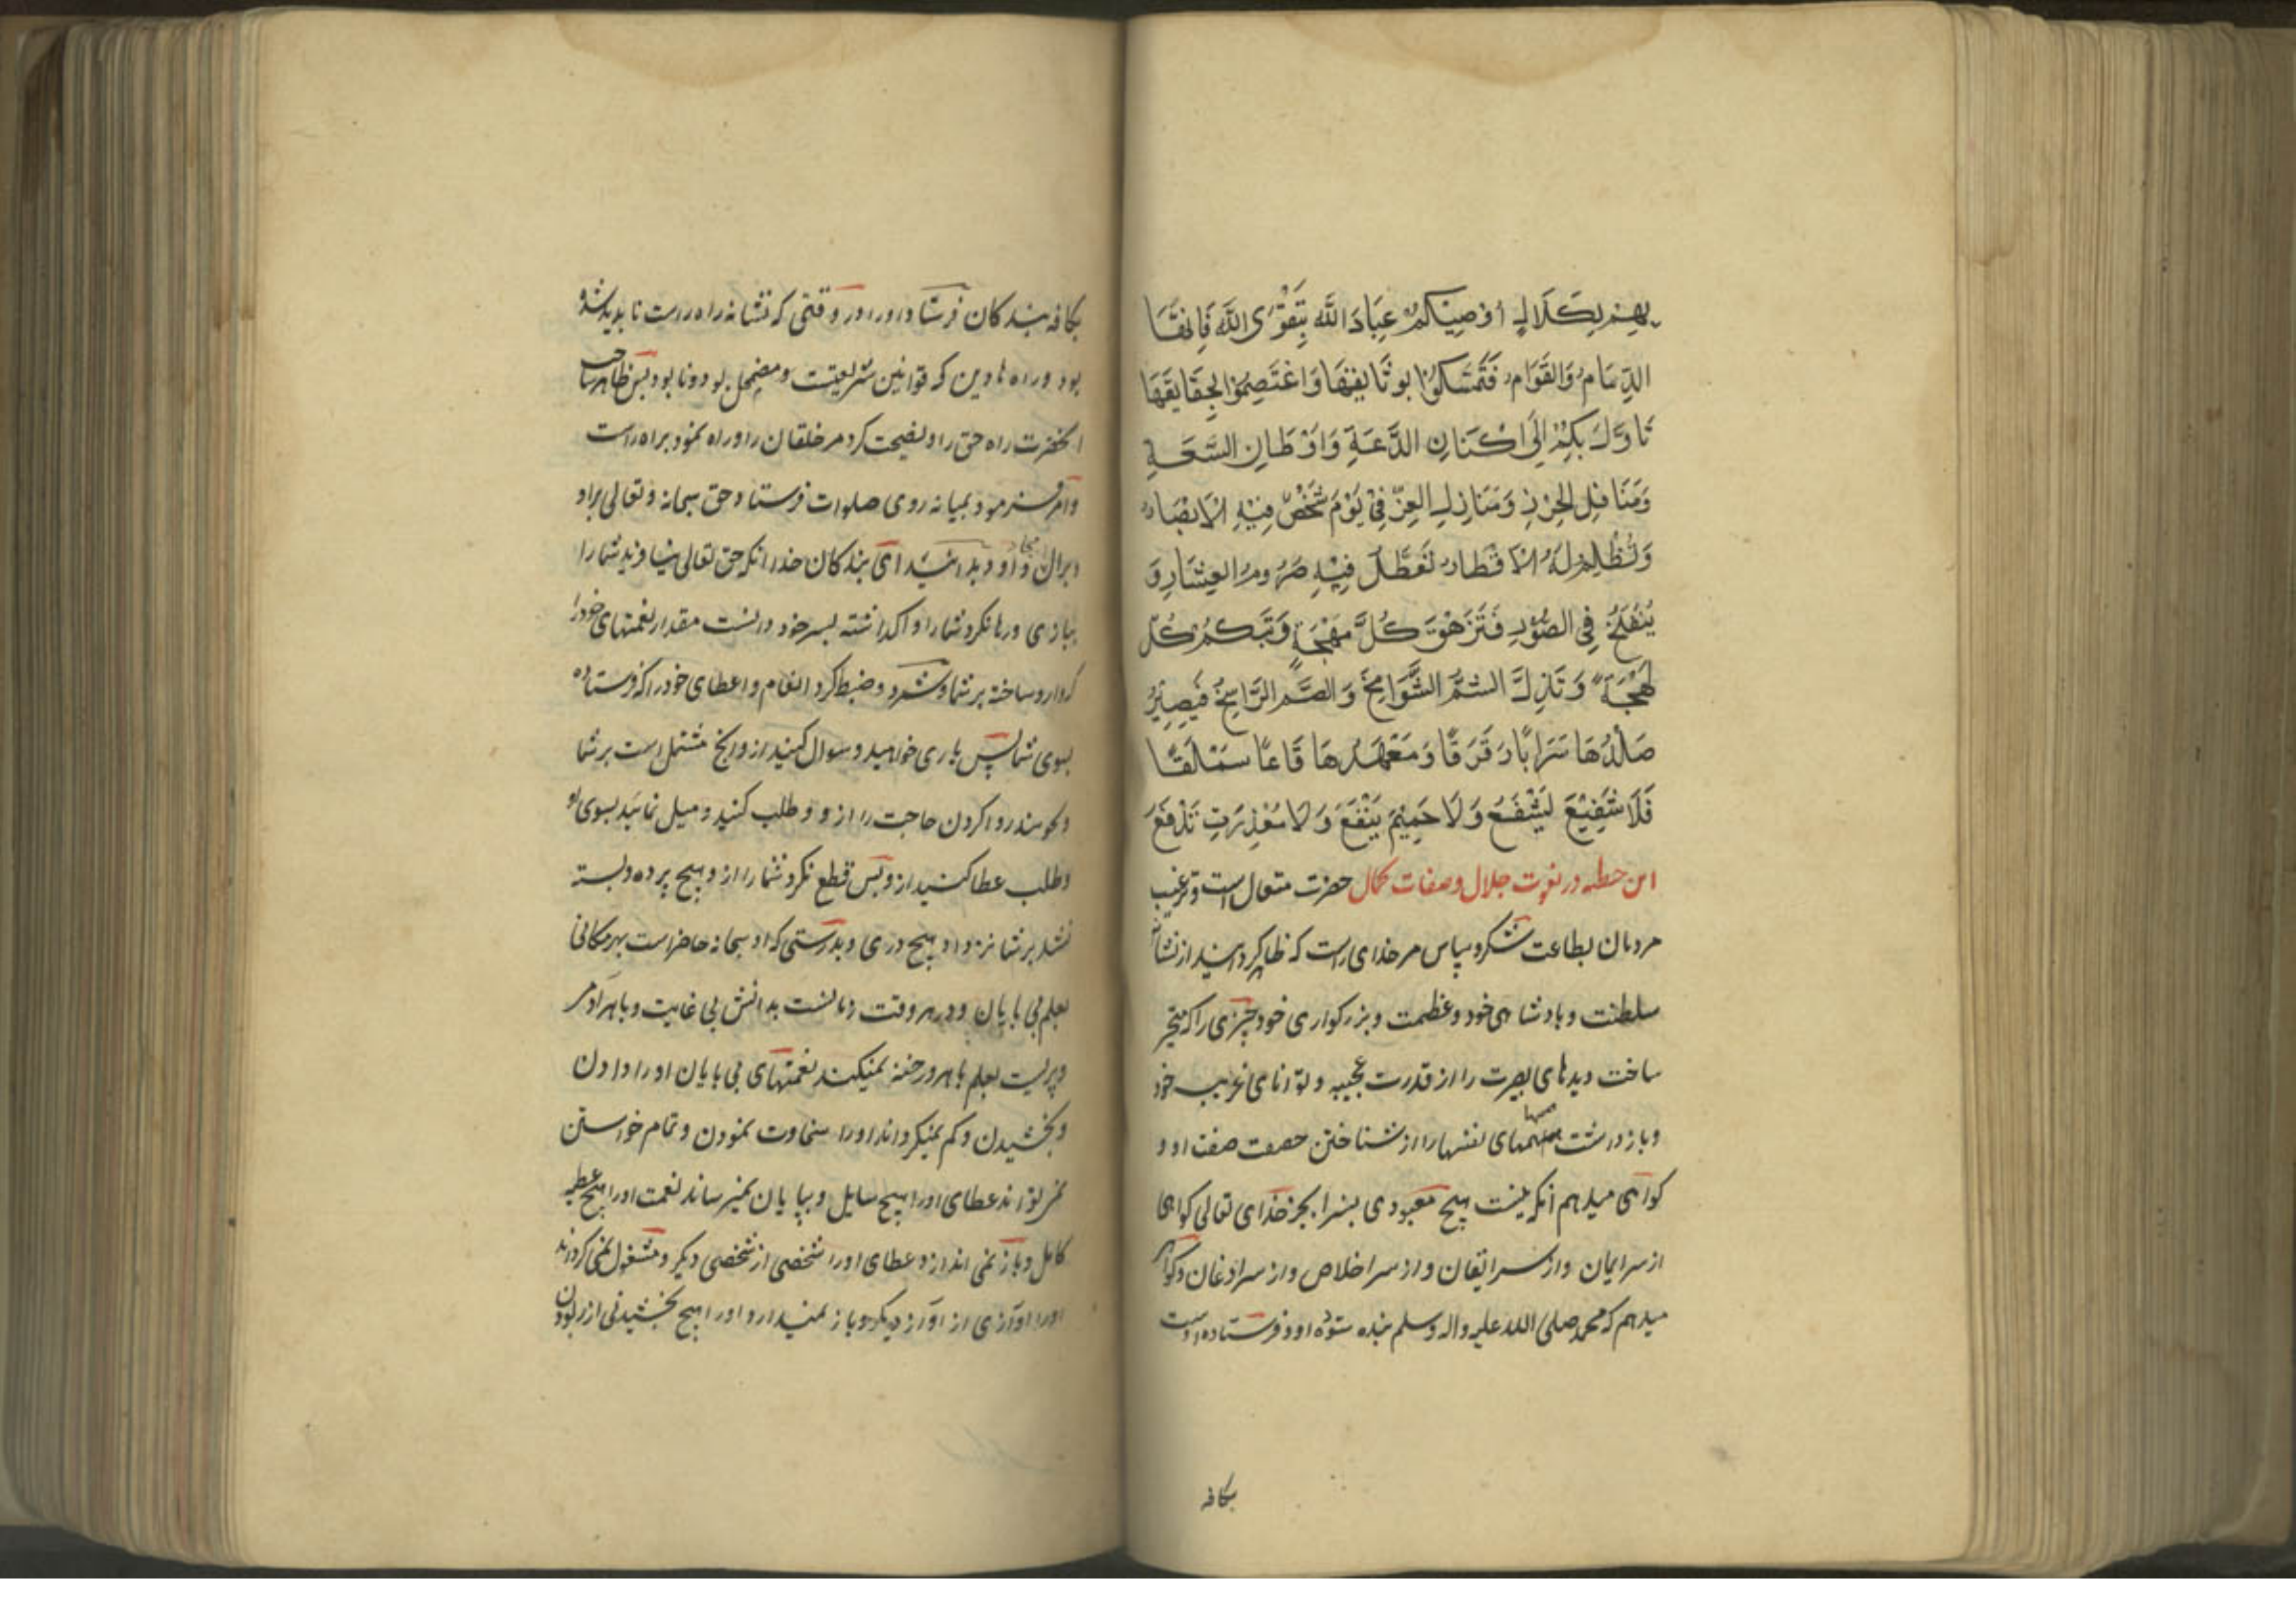 بِهِنَّ بِكَلَالٍ أُوْصِيْنكُمْ عِبَادَ اللَّه بِتَقْوَى اللَّه فَاِنهَّا
الزِّمَامُ وَالقَوَامُ فَتَمَسَّكُوْا بوثَايقِهَا وَاعْتَصِمُوْا بِحَقَايقَهَا
تَاوَلَ بِكُمْ اِلَى اَكْنَانِ الدَّعَةِ وَاَوْطَانِ السَّعَةِ
وَمَنَاقِلِ الحِرْزِ وَمَنَازِلِ العِزّ فِيْ يَوْمَ تَشْخَصُ فِيْهِ الْاَبْصَارُ
وَتُظْلِمُ لَهُ الْاَقْطَارُ تُعَطَّلُ فِيْهِ صُرُومرُ العِشَارِ وَ
يُنْفَخُ فِي الصُّوْرِ فَتَزْهَقُ كُلَّ مُهْجَةٍ وَتَبْكمُ كُلّ
لَهْجَةٍ وَتَذِلُّ الشُمُّ الشَّوَامِخُ وَالصُّم الرَّاسِخُ فَيَصِيْرُ
صَلْدُهَا سَرَابًا رَقْرَقًا وَمَعْهَدُهَا قَاعًا سَمْلَقًا
فَلَا شَفِيْعَ لَيَشْفَعُ وَلَا حَمِيْمَ يَنْفَعُ وَلَا مَعْذِرَتٍ تَدْفَعُ
این خطبه در نعوت جلال و صفات کمال حضرت متعال است و ترغیب
مردمان بطاعت شکر و سپاس مر خدای راست که ظاهر کردانید از نشان
سلطنت و بادشاهی خود و عظمت و بزرکواری خود چیزی را که متحیر
ساخت دیدهای بصیرت را از قدرت عجیبه و توانای غریب خود
و بازداشت همتهای نفسها را از شناختن حقیقت صفت او و
کواهی میدهم آنکه نیست هیچ معبودی بسزا بجز خدای تعالی کواهی
از سر ایمان و از سر ایقان و از سر اخلاص و از سر اذعان و کواهی
میدهم که محمد صلی الله علیه واله وسلم بنده ستوده او و فرستاده اوست
بکافه
بکافه بندکان فرستاد او را در وقتی که نشانه راه راست نابدید شده
بود و راه هاء دین که قوانین شریعتست و مضمحل بود و نابود بس ظاهر ساخت
آنحضرت راه حق را و نصیحت کرد مر خلقان را و راه نمود براه راست
و امر فرمود بمیانه روی صلوات فرستاد حق سبحانه و تعالی براو
و برال او و بدانید ای بندکان خدا آنکه حق تعالی نیافرید شما را
ببازی و رها نکرد شما را واکذاشته بسر خود دانست مقدار نعمتهای خود را
که وارد ساخته بر شما و شمرد و ضبط کرد انعام و اعطای خود را که فرستاده
بسوی شما پس یاری خواهید و سوال کنید از و انجح مشتمل است بر شما
و بجویید روا کردن حاجت را از و و طلب کنید و میل نمائید بسوی او
و طلب عطا کنید از و بس قطع نکرد شما را از و هیچ پرده و بسته
نشد بر شما نزد او هیچ دری و بدرستی که او سبحانه حاضر است بهر مکانی
بعلم بی بایان و در هر وقت زمانست بدانش بی غایت و با هر آدمی
و پریست بعلم باهر و رخنه نمیکند نعمتهای بی بایان او را دادن
و بخشیدن و کم نمیکرداند او را سخاوت نمودن و تمام خواستن
نمی تواند عطای او را هیچ سایل و بپایان نمیرساند نعمت او را هیچ عطیه
کامل و باز نمی اندازد عطای او را شخصی از شخصی دیکر و مشغول نمی کرداند
او را آوازی از آواز دیکر و باز نمیدارد او را هیچ بخشیدنی از ربودن